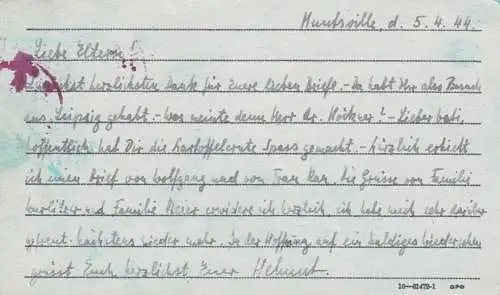 Huntsville, d. 5.4.44.
Liebe Eltern!
herzlichsten Dank für Eure lieben Briefe. - Da habt Ihr also Besuch
aus Leipzig gehabt. - Was meinte denn Herr Dr. ? - Lieber Vati,
hoffentlich hat Dir die Kartoffelernte Spass gemacht. - Kürzlich erhielt
ich einen Brief von Wolfgang und von Frau . Die Grüsse von Familie
und Familie Meier erwidere ich herzlich, ich habe mich sehr darüber
gefreut. Nächstens wieder mehr. In der Hoffnung auf ein baldiges Wiedersehen
grüsst Euch herzlichst Euer Helmut.
16-61479-1 GPO